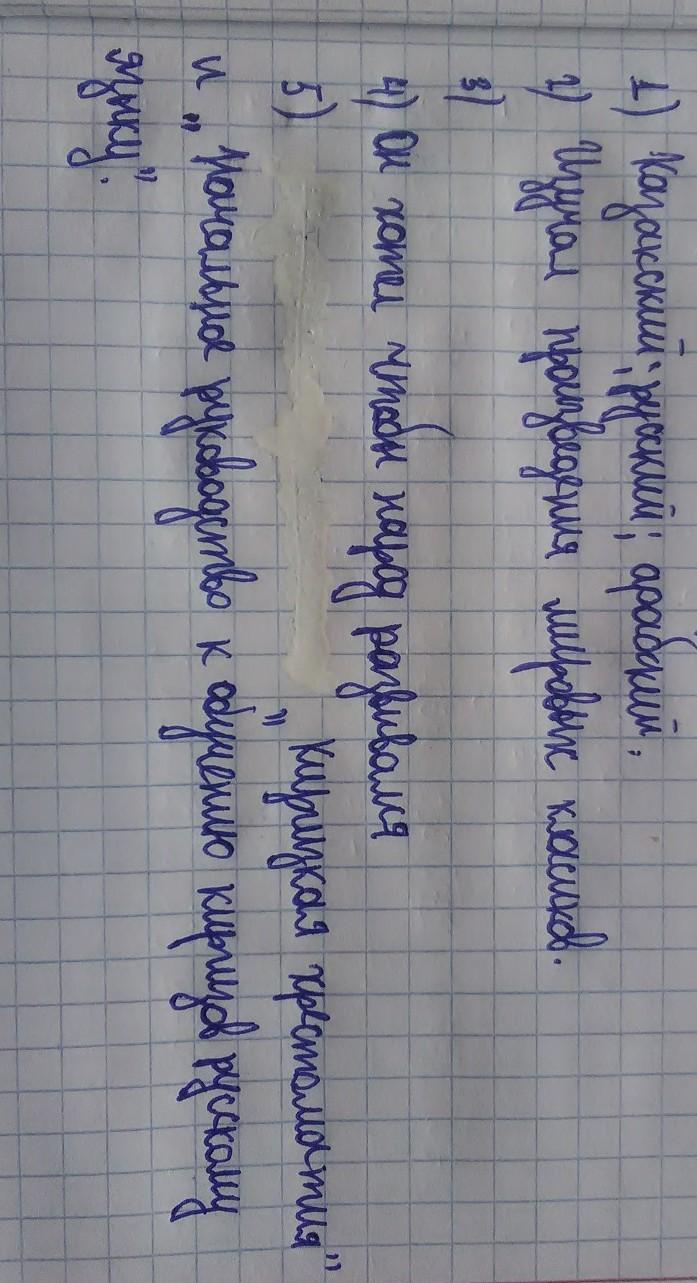 1) Казакский, русский, арабский.
2) Изучал произведения мировых класиков.
3)
4) Он хотел чтобы народ развивался
5) „Киргизкая хрестоматия"
и „Начальное руководство к обучению киргизов рускаму
языку".